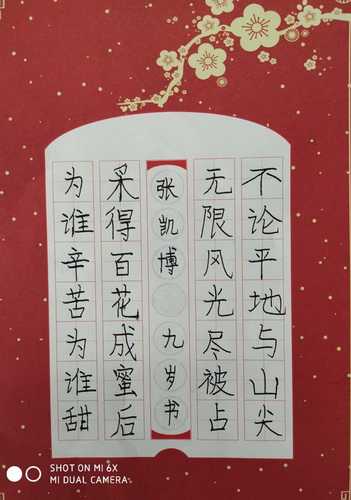 不论平地与山尖
无限风光尽被占
张凯博 九岁书
采得百花成蜜后
为谁辛苦为谁甜
SHOT ON MI 6X
MI DUAL CAMERA